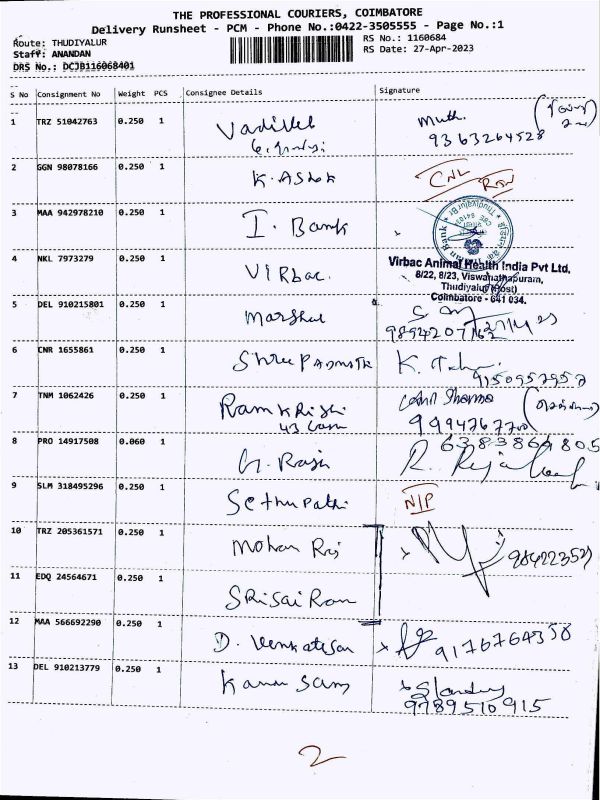 THE PROFESSIONAL COURIERS, COIMBATORE
Delivery Runsheet - PCM - Phone No.:0422-3505555 - Page No.:1
Route: THUDIYALUR
Staff: ANANDAN
DRS No.: DCJB116068401
RS No.: 1160684
RS Date: 27-Apr-2023
S No Consignment No Weight PCS Consignee Details Signature
1 TRZ 51042763 0.250 1 Muth.
9363264528
2 GGN 98078166 0.250 1 K. Ashok CNL
3 MAA 942978210 0.250 1 I. Bank
4 NKL 7973279 0.250 1 Virbac
Virbac Animal Health India Pvt Ltd.
8/22, 8/23, Viswanathapuram,
Thudiyalur (Post)
Coimbatore - 641 034.
5 DEL 910215801 0.250 1 Marshal
6 CNR 1655861 0.250 1 Shree Padmatk K.
9150957957
7 TNM 1062426 0.250 1 Ramkrishi Sharma
9994767700
8 PRO 14917508 0.060 1 G. Raju 6383869805
9 SLM 318495296 0.250 1 Sethupathi N/P
10 TRZ 205361571 0.250 1 Mohan Raj
11 EDQ 24564671 0.250 1 Srisai Ram
12 MAA 566692290 0.250 1 D. Venkatesan 9176764358
13 DEL 910213779 0.250 1 Kannusamy
9789510915
2